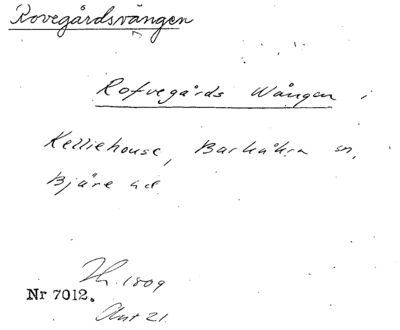 Rovegårdsvången
Rofvegårds Wången i
Kelliehouse, Barkåkra sn,
Bjäre hd
1809
Nr 7012.
Akt 21.